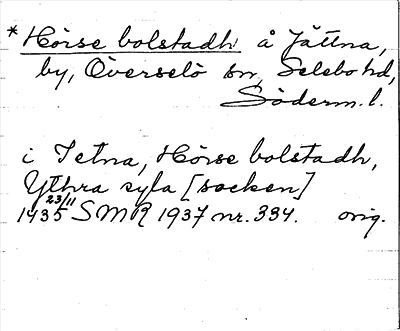 * Hörse bolstadh å Jättna,
by, Överselö sn, Selebo hd,
Söderm. l.
i Jetna, Hörse bolstadh,
Ythra syla [socken]
23/11
1435 SMR 1937 nr. 334. orig.